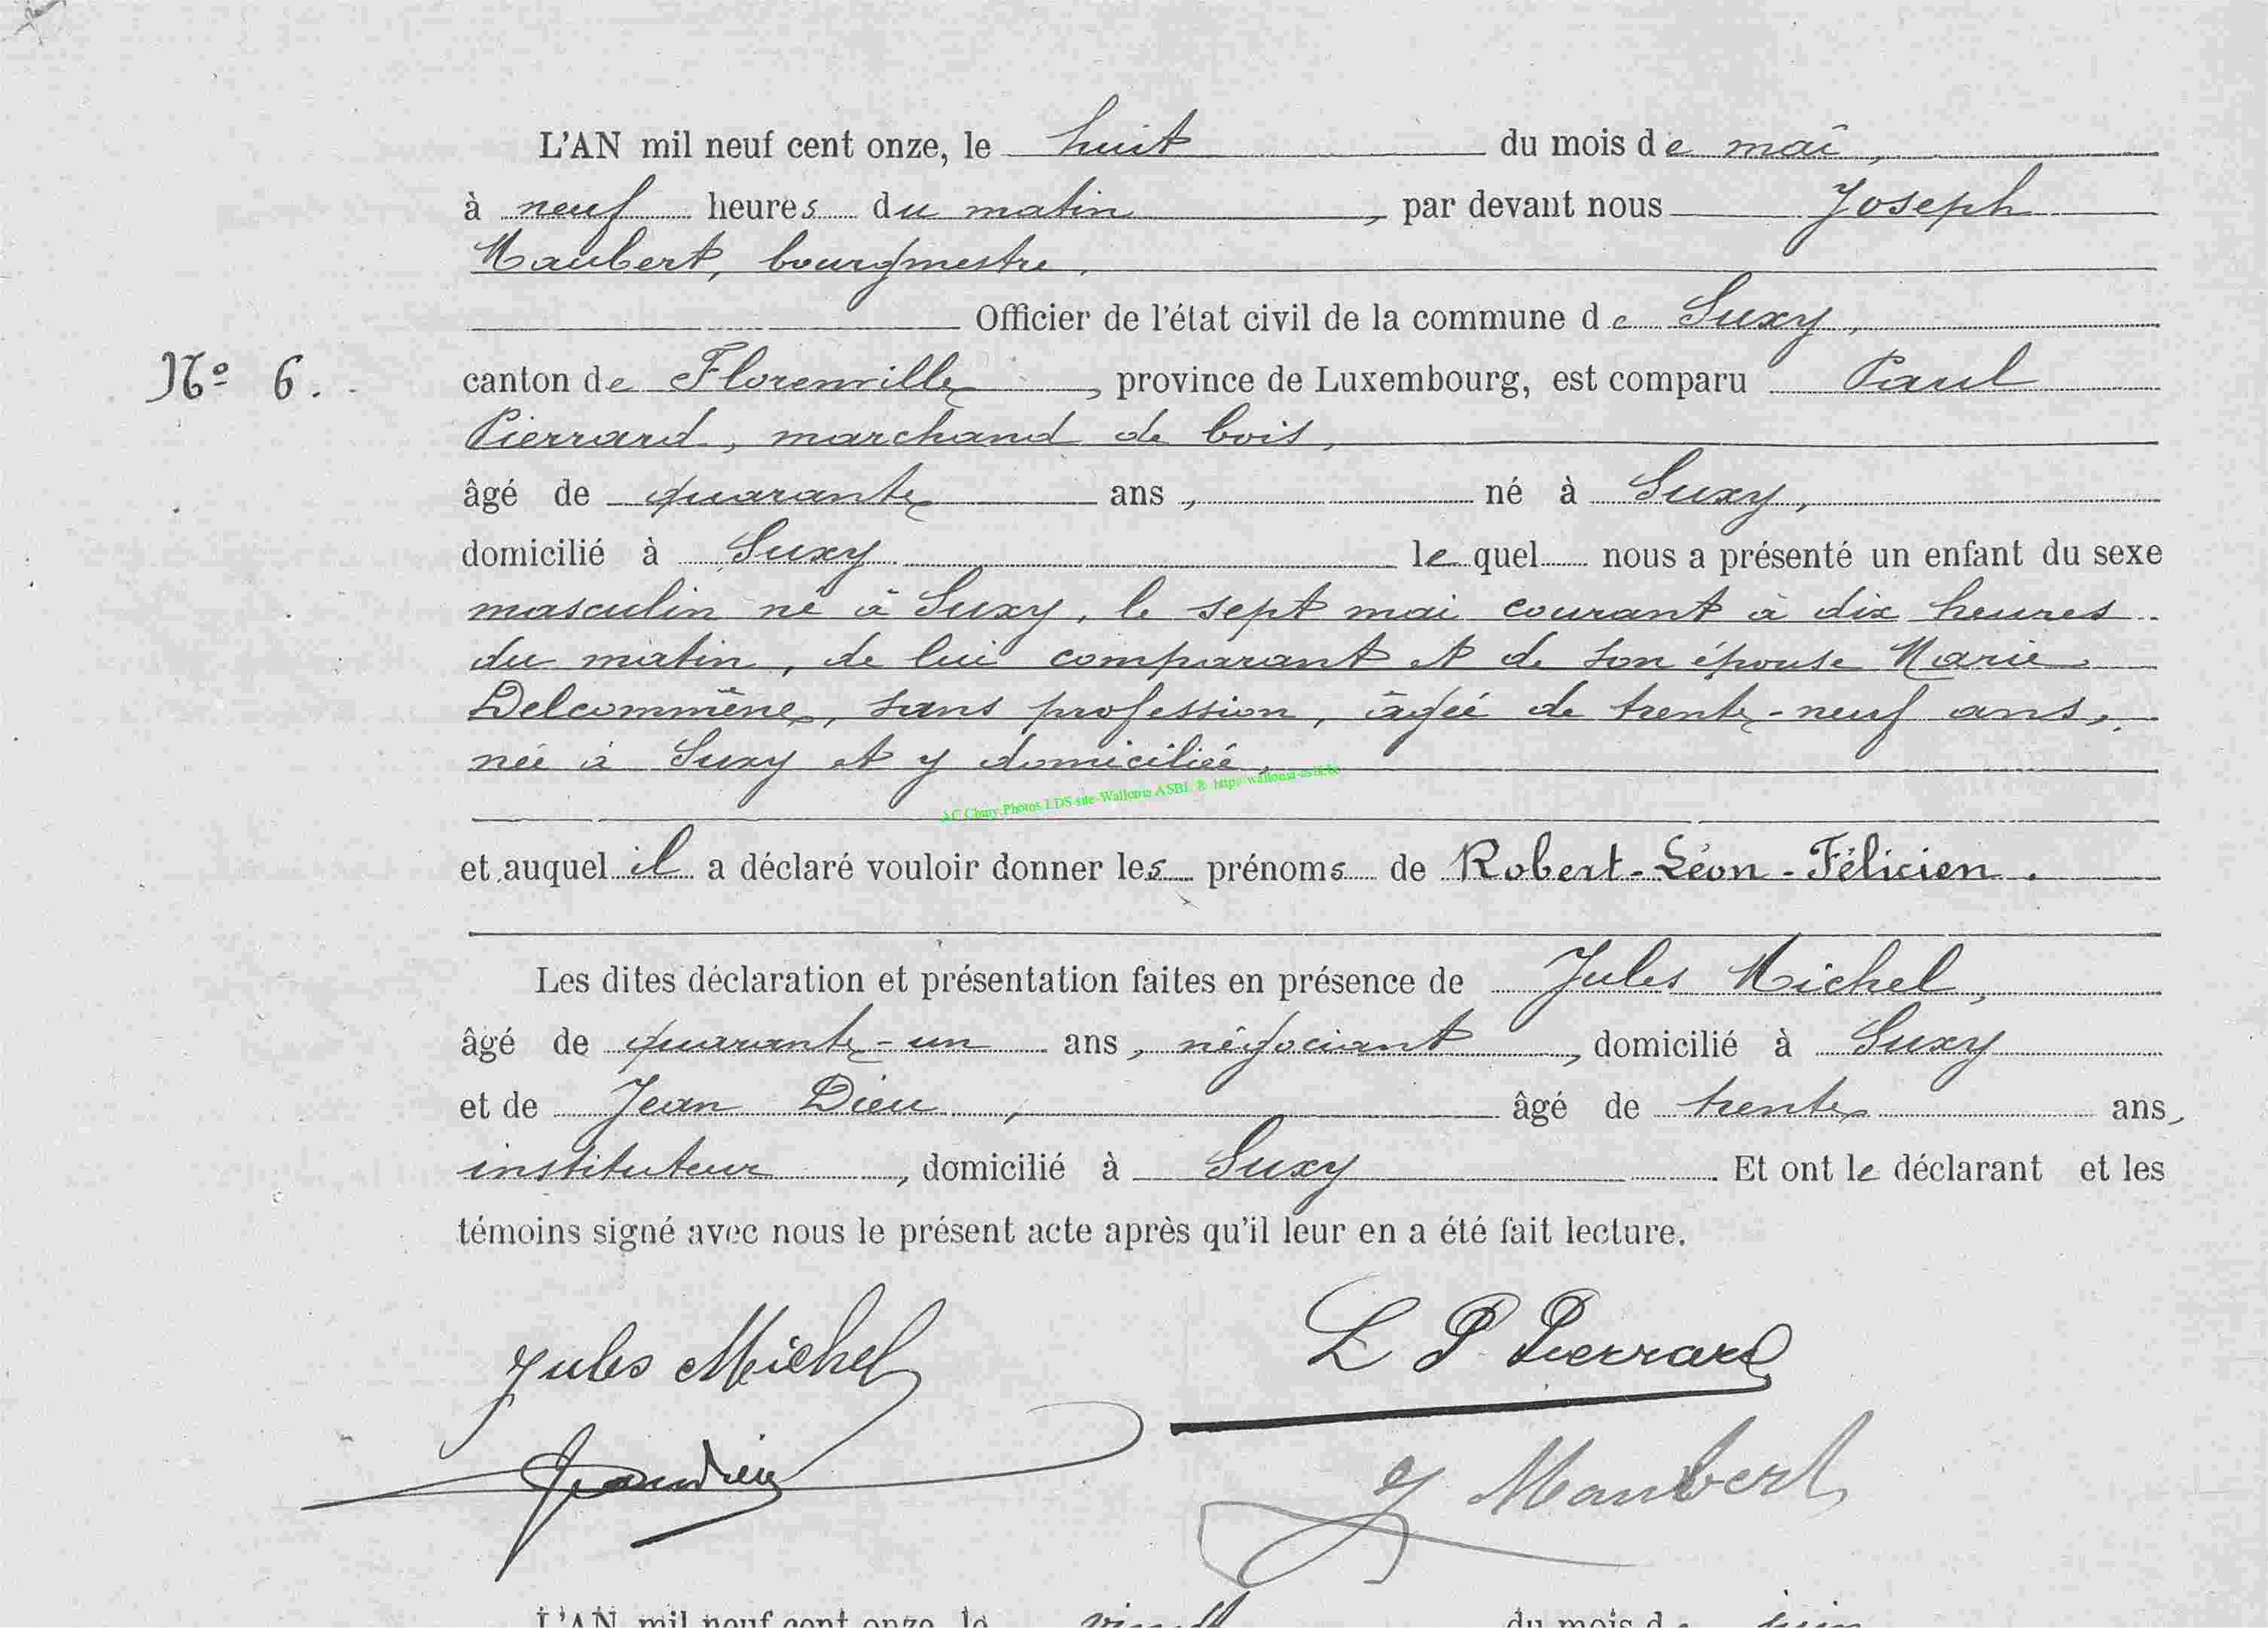 L'AN mil neuf cent onze, le huit du mois de mai,
à neuf heures du matin, par devant nous Joseph
Maubert, bourgmestre,
Officier de l'état civil de la commune de Suxy,
N° 6.
canton de Florenville, province de Luxembourg, est comparu Paul
Pierrard, marchand de bois,
âgé de quarante ans, né à Suxy,
domicilié à Suxy lequel nous a présenté un enfant du sexe
masculin né à Suxy, le sept mai courant à dix heures
du matin, de lui comparant et de son épouse Marie
Delcommène, sans profession, âgée de trente-neuf ans,
née à Suxy et y domiciliée,
AC Chiny Photos LDS site Wallonia ASBL ® http://wallonia-asbl.be
et auquel il a déclaré vouloir donner les prénoms de Robert-Léon-Félicien.
Les dites déclaration et présentation faites en présence de Jules Michel,
âgé de quarante-un ans, négociant, domicilié à Suxy
et de Jean Dieu, âgé de trente ans,
instituteur, domicilié à Suxy. Et ont le déclarant et les
témoins signé avec nous le présent acte après qu'il leur en a été fait lecture.
Jules Michel L P Pierrard
JeanDieu J Maubert
L'AN mil neuf cent onze, le vingt du mois de juin